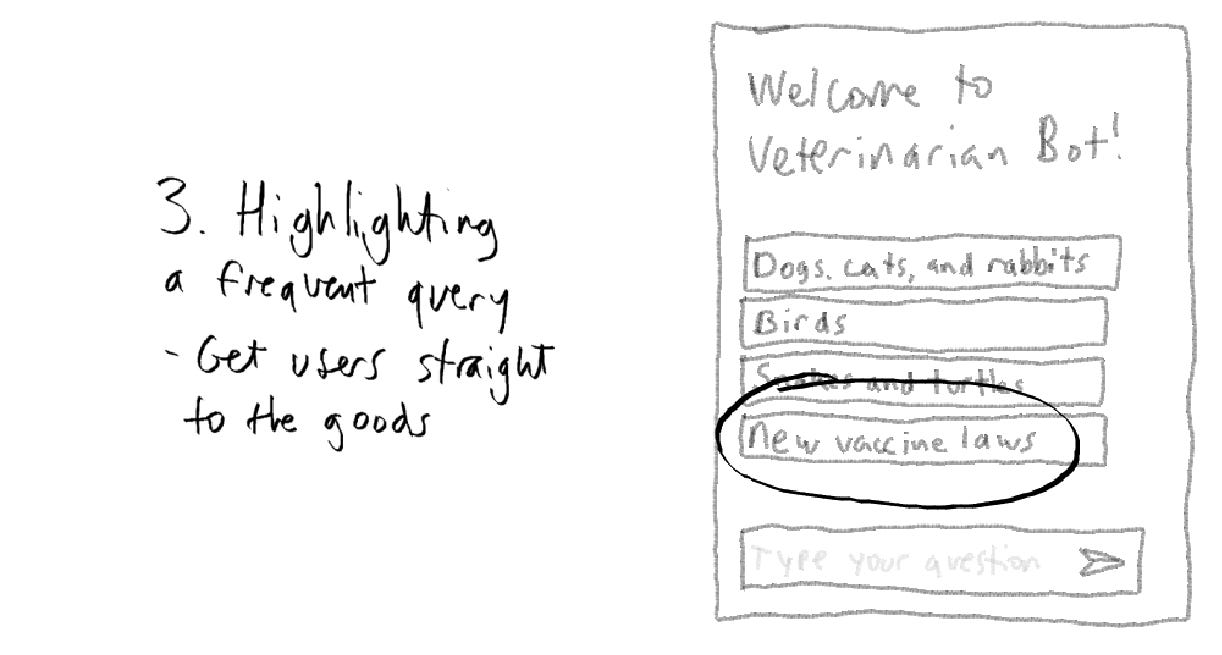 3. Highlighting
a frequent query
- Get users straight
to the goods
Welcome to
Veterinarian Bot!
Dogs. cats, and rabbits
Birds
Snakes and turtles
New vaccine laws
Type your question